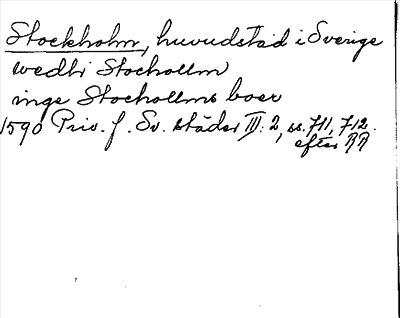 Stockholm, huvudstad i Sverige
wedh Stochollm
inge Stochollms boer
1590 Priv. f. Sv. städer III: 2, ss. 711, 712.
efter RR